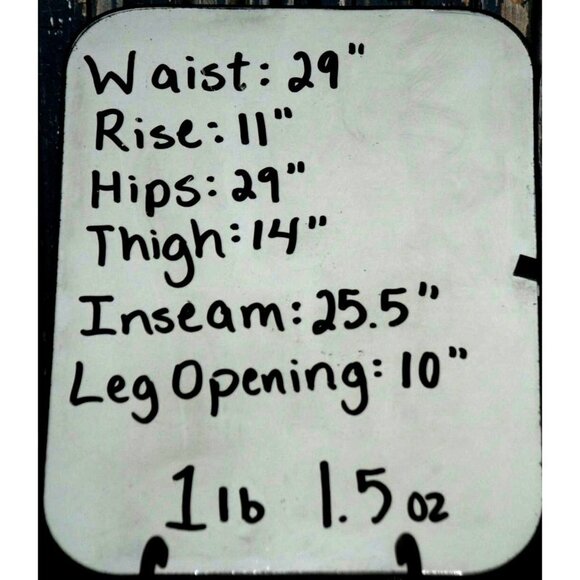 Waist: 29"
Rise: 11"
Hips: 29"
Thigh: 14"
Inseam: 25.5"
Leg Opening: 10"
1 lb 1.5 oz